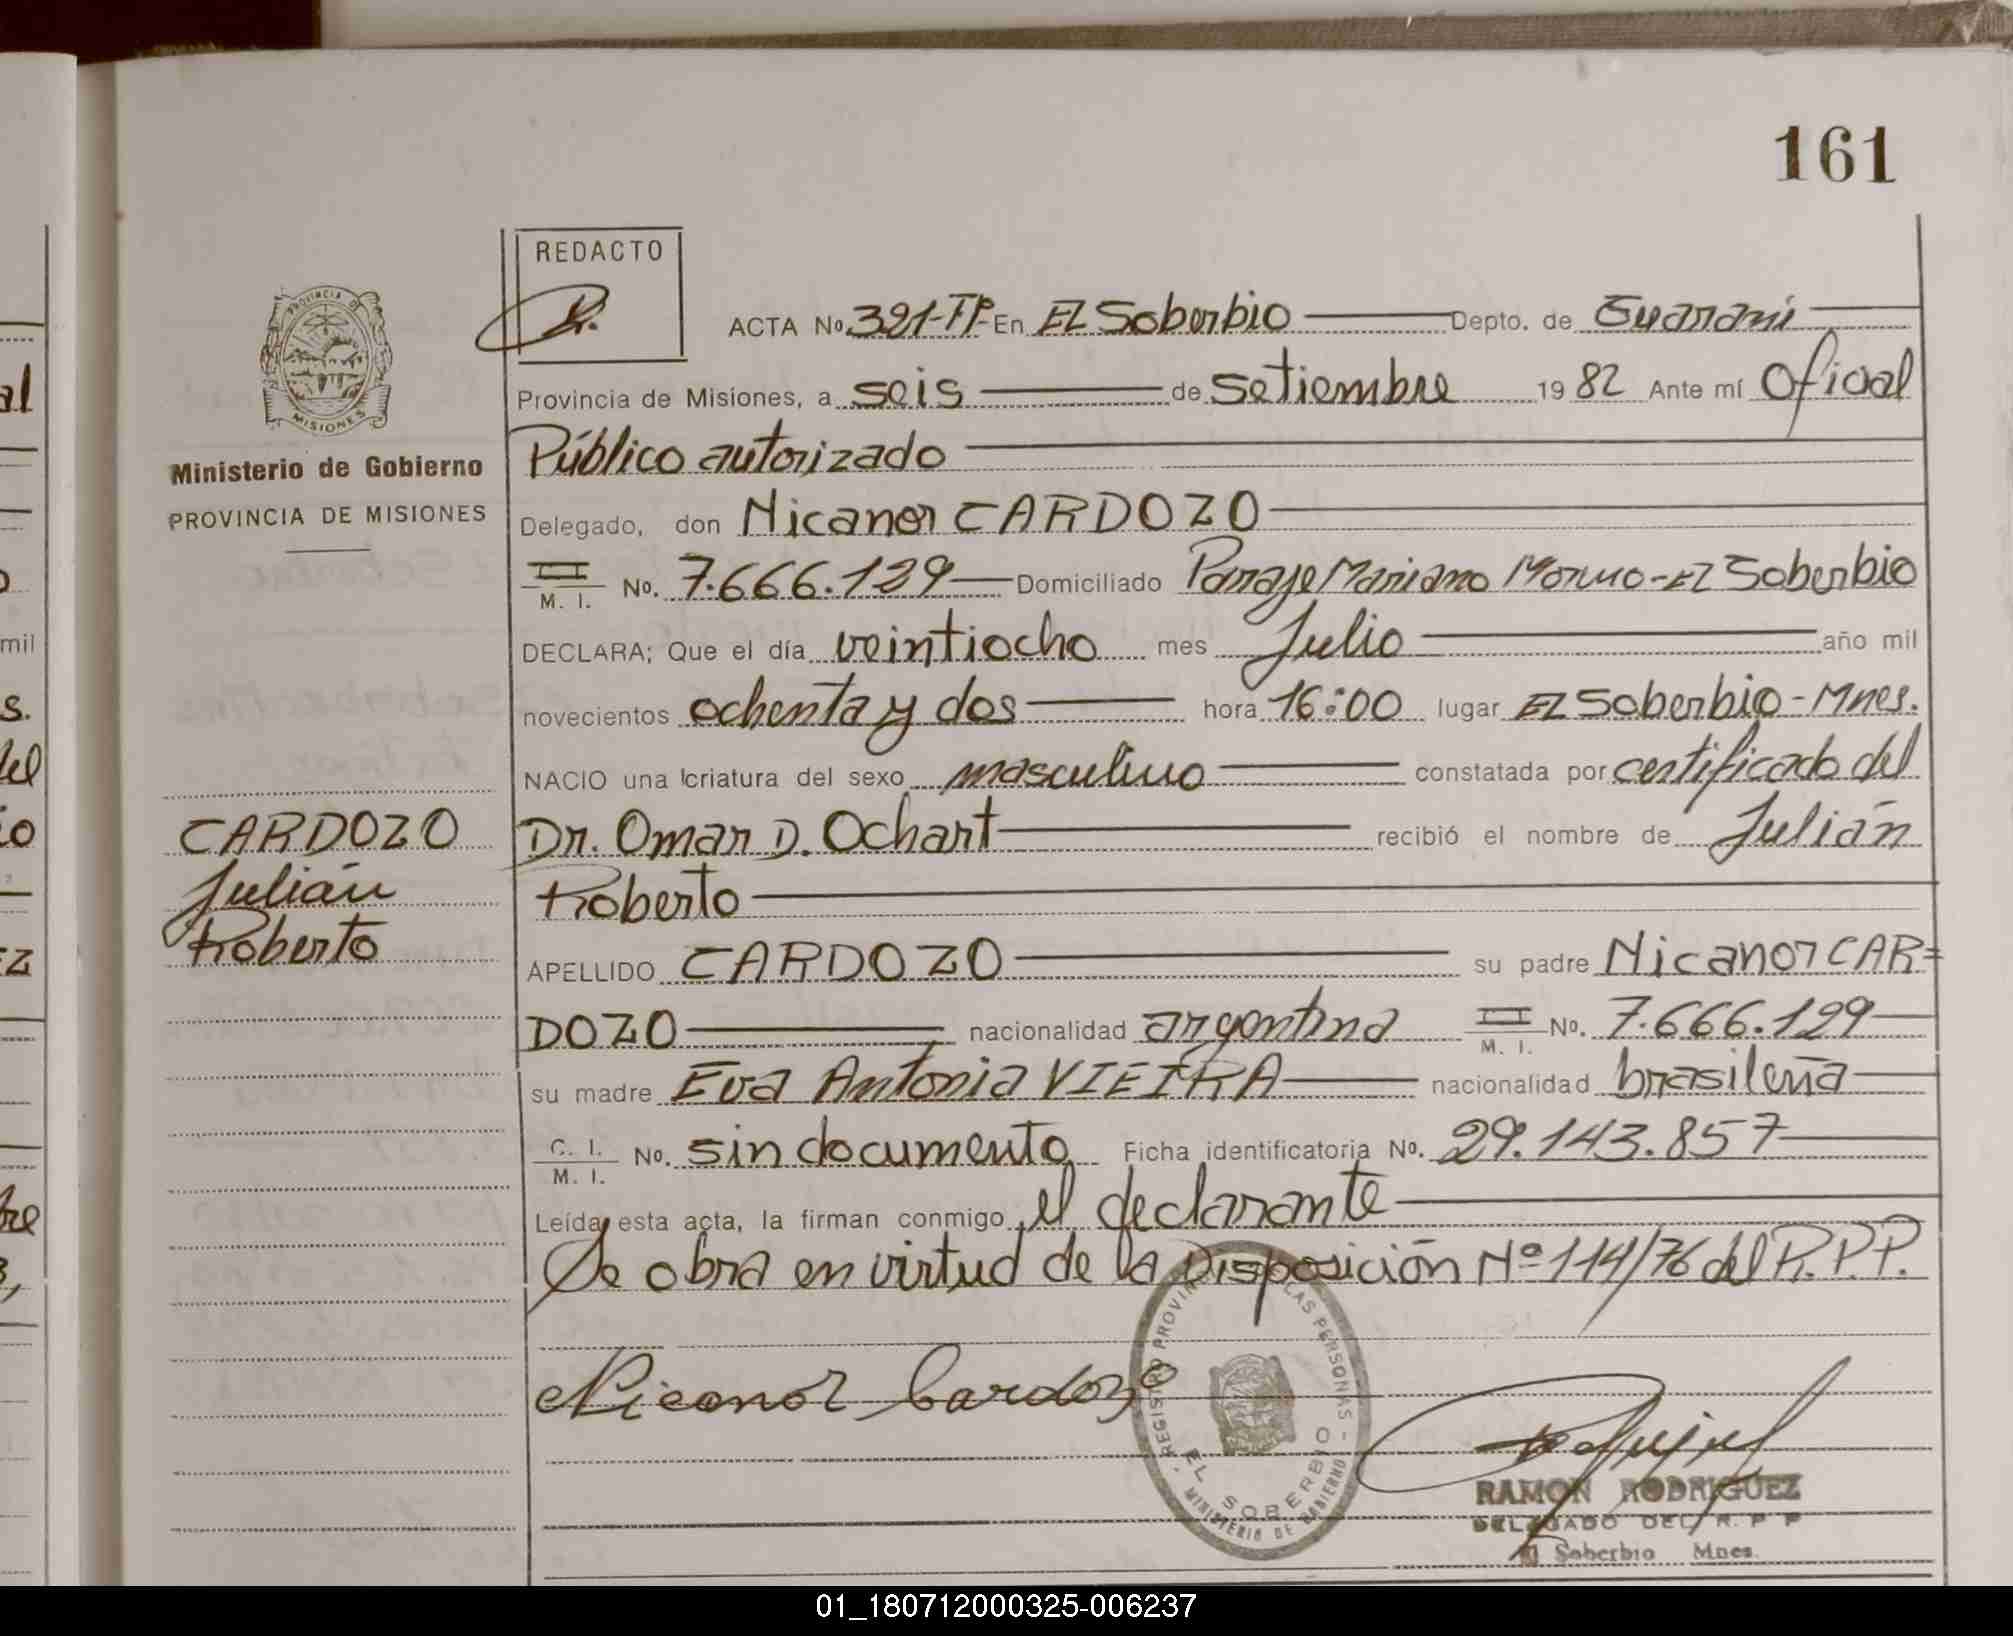 161
REDACTO
PROVINCIA DE
MISIONES
Ministerio de Gobierno
PROVINCIA DE MISIONES
ACTA No. 321-TP- En EL Soberbio Depto. de Guaraní
Provincia de Misiones, a seis de setiembre 1982 Ante mí Oficial
Público autorizado
Delegado, don Nicanor CARDOZO
M. I. No. 7.666.129 Domiciliado Paraje Mariano Moreno-EL Soberbio
DECLARA; Que el día veintiocho mes Julio año mil
novecientos ochenta y dos hora 16:00 lugar EL Soberbio-Mnes.
NACIO una criatura del sexo masculino constatada por certificado del
Dr. Omar D. Ochart recibió el nombre de Julián
Roberto
CARDOZO
Julián
Roberto
APELLIDO CARDOZO su padre Nicanor CAR=
DOZO nacionalidad argentina M. I. No. 7.666.129
su madre Eva Antonia VIEIRA nacionalidad brasileña
C. I. M. I. No. sin documento Ficha identificatoria No. 29.143.857
Leída esta acta, la firman conmigo, el declarante
Se obra en virtud de la Disposición Nº 114/76 del R.P.P.
Nicanor Cardozo
REGISTRO PROVIN LAS PERSONAS - MINISTERIO DE GOBIERNO
EL SOBERBIO
RAMON RODRIGUEZ
DELEGADO DEL R. P P
El Soberbio Mnes.
01_180712000325-006237